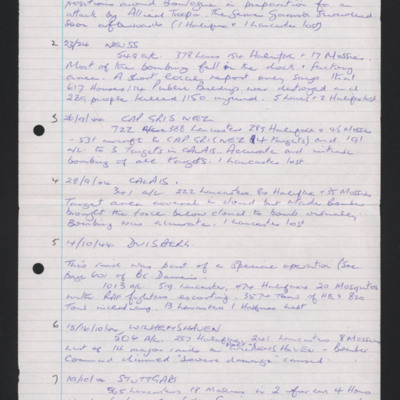 positions around Boulogne in preparation for an
attack by Allied Troops. The German Garrison surrendered
soon afterwards (1 Halifax + 1 Lancaster lost)
2 23/24 NEUSS
549 a/c. 378 Lancs 154 Halifax + 17 Mossies.
Most of the bombing fell in the dock + factory
areas. A short local report only says that
617 Houses, 14 Public Buildings was destroyed and
289 people killed, 150 injured. 5 Lancs + 2 Halifax lost
3 26/9/44 CAP GRIS NEZ
722 a/c 388 Lancaster 289 Halifax + 45 Mossies
- 531 aircraft to CAP GRIS NEZ (4 targets) and 191
a/c to 3 Targets in CALAIS. Accurate and intense
bombing of all targets. 1 Lancaster lost
4 28/9/44 CALAIS.
341 a/c 222 Lancasters 80 Halifax + Mossies
Target area covered in cloud but Master Bomber
brought the force below cloud to bomb visually.
Bombing was accurate. 1 Lancaster lost
5 /10/44 DUISBERG
This raid was part of a special operation (See
Page 601 of Bc Diaries.
1013 a/c 519 Lancasters, 474 Halifaxes 20 Mosquitos
with RAF fighters escorting. 3574 Tons of HE + 820
Tons incendiary. 13 Lancasters 1 Halifax lost
6 15/16/10/44 WILHELMSHAVEN
506 a/c. 257 Halifaxes 241 Lancasters 8 Mossies
Last of 14 major raids on WILHELMSHAVEN + Bomber
Command claimed "Severe damage" caused.
7 19/10/44 STUTTGART
565 Lancasters 18 Mossies in 2 forces 4 Hours